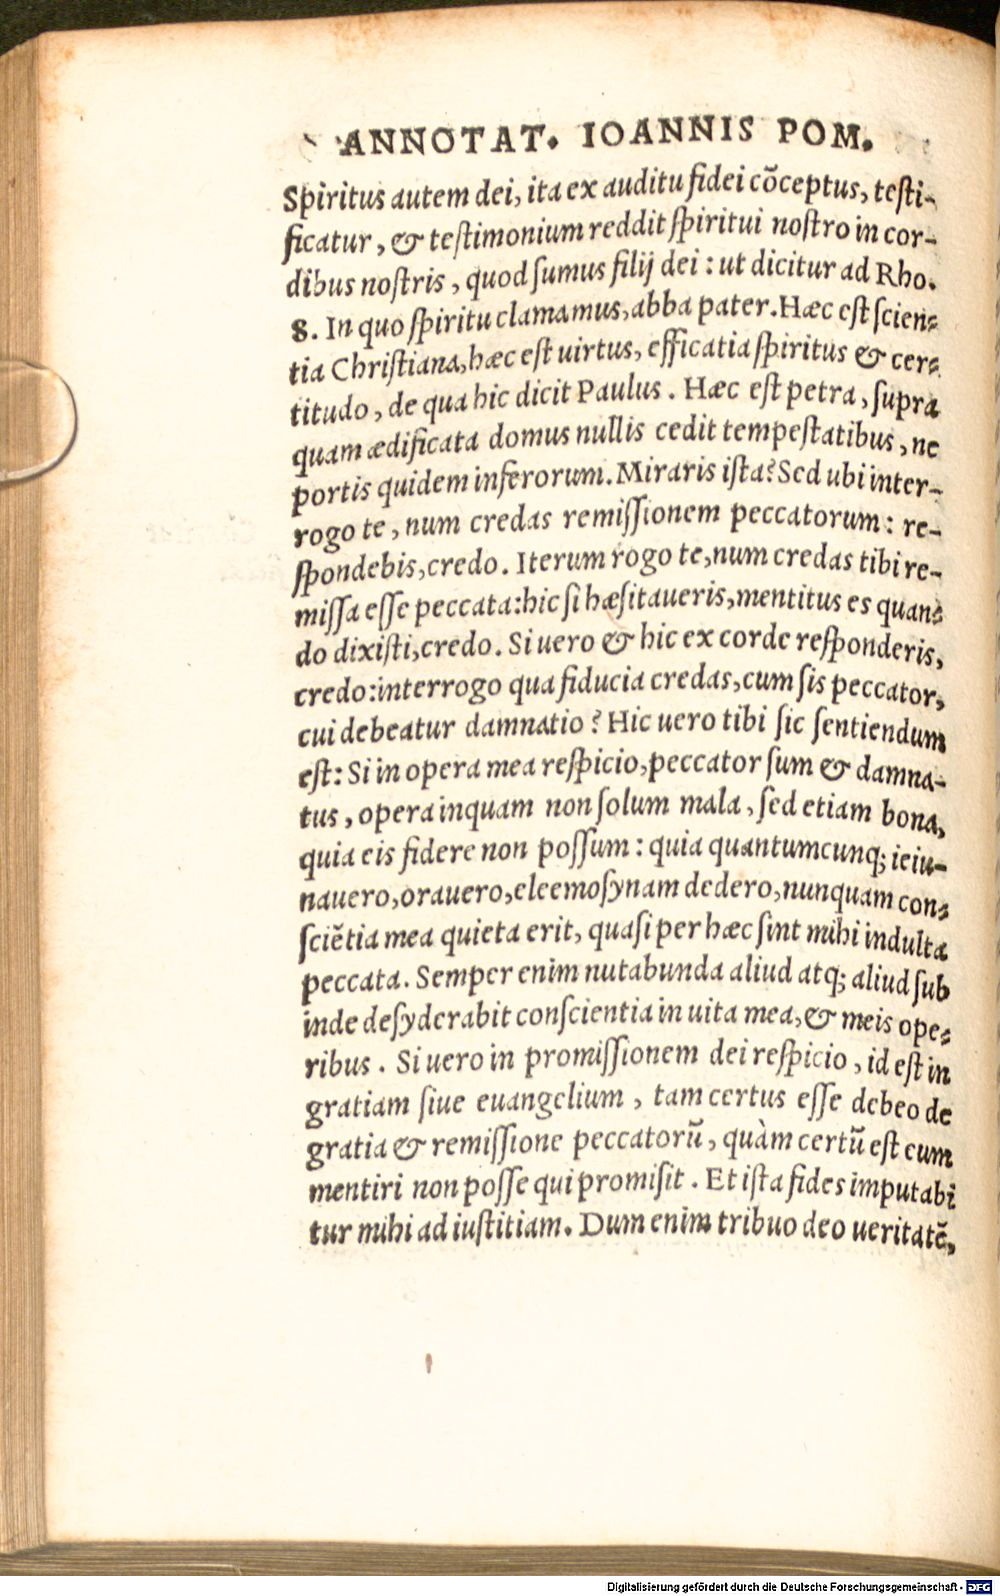 ANNOTAT. IOANNIS POM.
Spiritus autem dei, ita ex auditu fidei cõceptus, teſti-
ficatur, & teſtimonium reddit ſpiritui noſtro in cor-
dibus noſtris, quod ſumus filij dei: ut dicitur ad Rho.
8. In quo ſpiritu clamamus, abba pater. Hæc eſt ſcien-
tia Chriſtiana, hæc eſt uirtus, efficatia ſpiritus & cer-
titudo, de qua hic dicit Paulus. Hæc eſt petra, ſupra
quam ædificata domus nullis cedit tempeſtatibus, ne
portis quidem inferorum. Miraris iſta? Sed ubi inter-
rogo te, num credas remiſſionem peccatorum: re-
ſpondebis, credo. Iterum rogo te, num credas tibi re-
miſſa eſſe peccata: hic ſi hæſitaueris, mentitus es quan-
do dixiſti, credo. Si uero & hic ex corde reſponderis,
credo: interrogo qua fiducia credas, cum ſis peccator,
cui debeatur damnatio? Hic uero tibi ſic ſentiendum
eſt: Si in opera mea reſpicio, peccator ſum & damna-
tus, opera inquam non ſolum mala, ſed etiam bona,
quia eis fidere non poſſum: quia quantumcunq; ieiu-
nauero, orauero, eleemoſynam dedero, nunquam con-
ſciẽtia mea quieta erit, quaſi per hæc ſint mihi indulta
peccata. Semper enim nutabunda aliud atq; aliud ſub
inde deſyderabit conſcientia in uita mea, & meis ope-
ribus. Si uero in promiſſionem dei reſpicio, id eſt in
gratiam ſiue euangelium, tam certus eſſe debeo de
gratia & remiſſione peccatorũ, quàm certũ eſt eum
mentiri non poſſe qui promiſit. Et iſta fides imputabi
tur mihi ad iuſtitiam. Dum enim tribuo deo ueritatẽ,
Digitalisierung gefördert durch die Deutsche Forschungsgemeinschaft - DFG